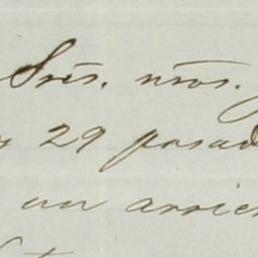 Srēs. nrōs.
29 pasad
un arric